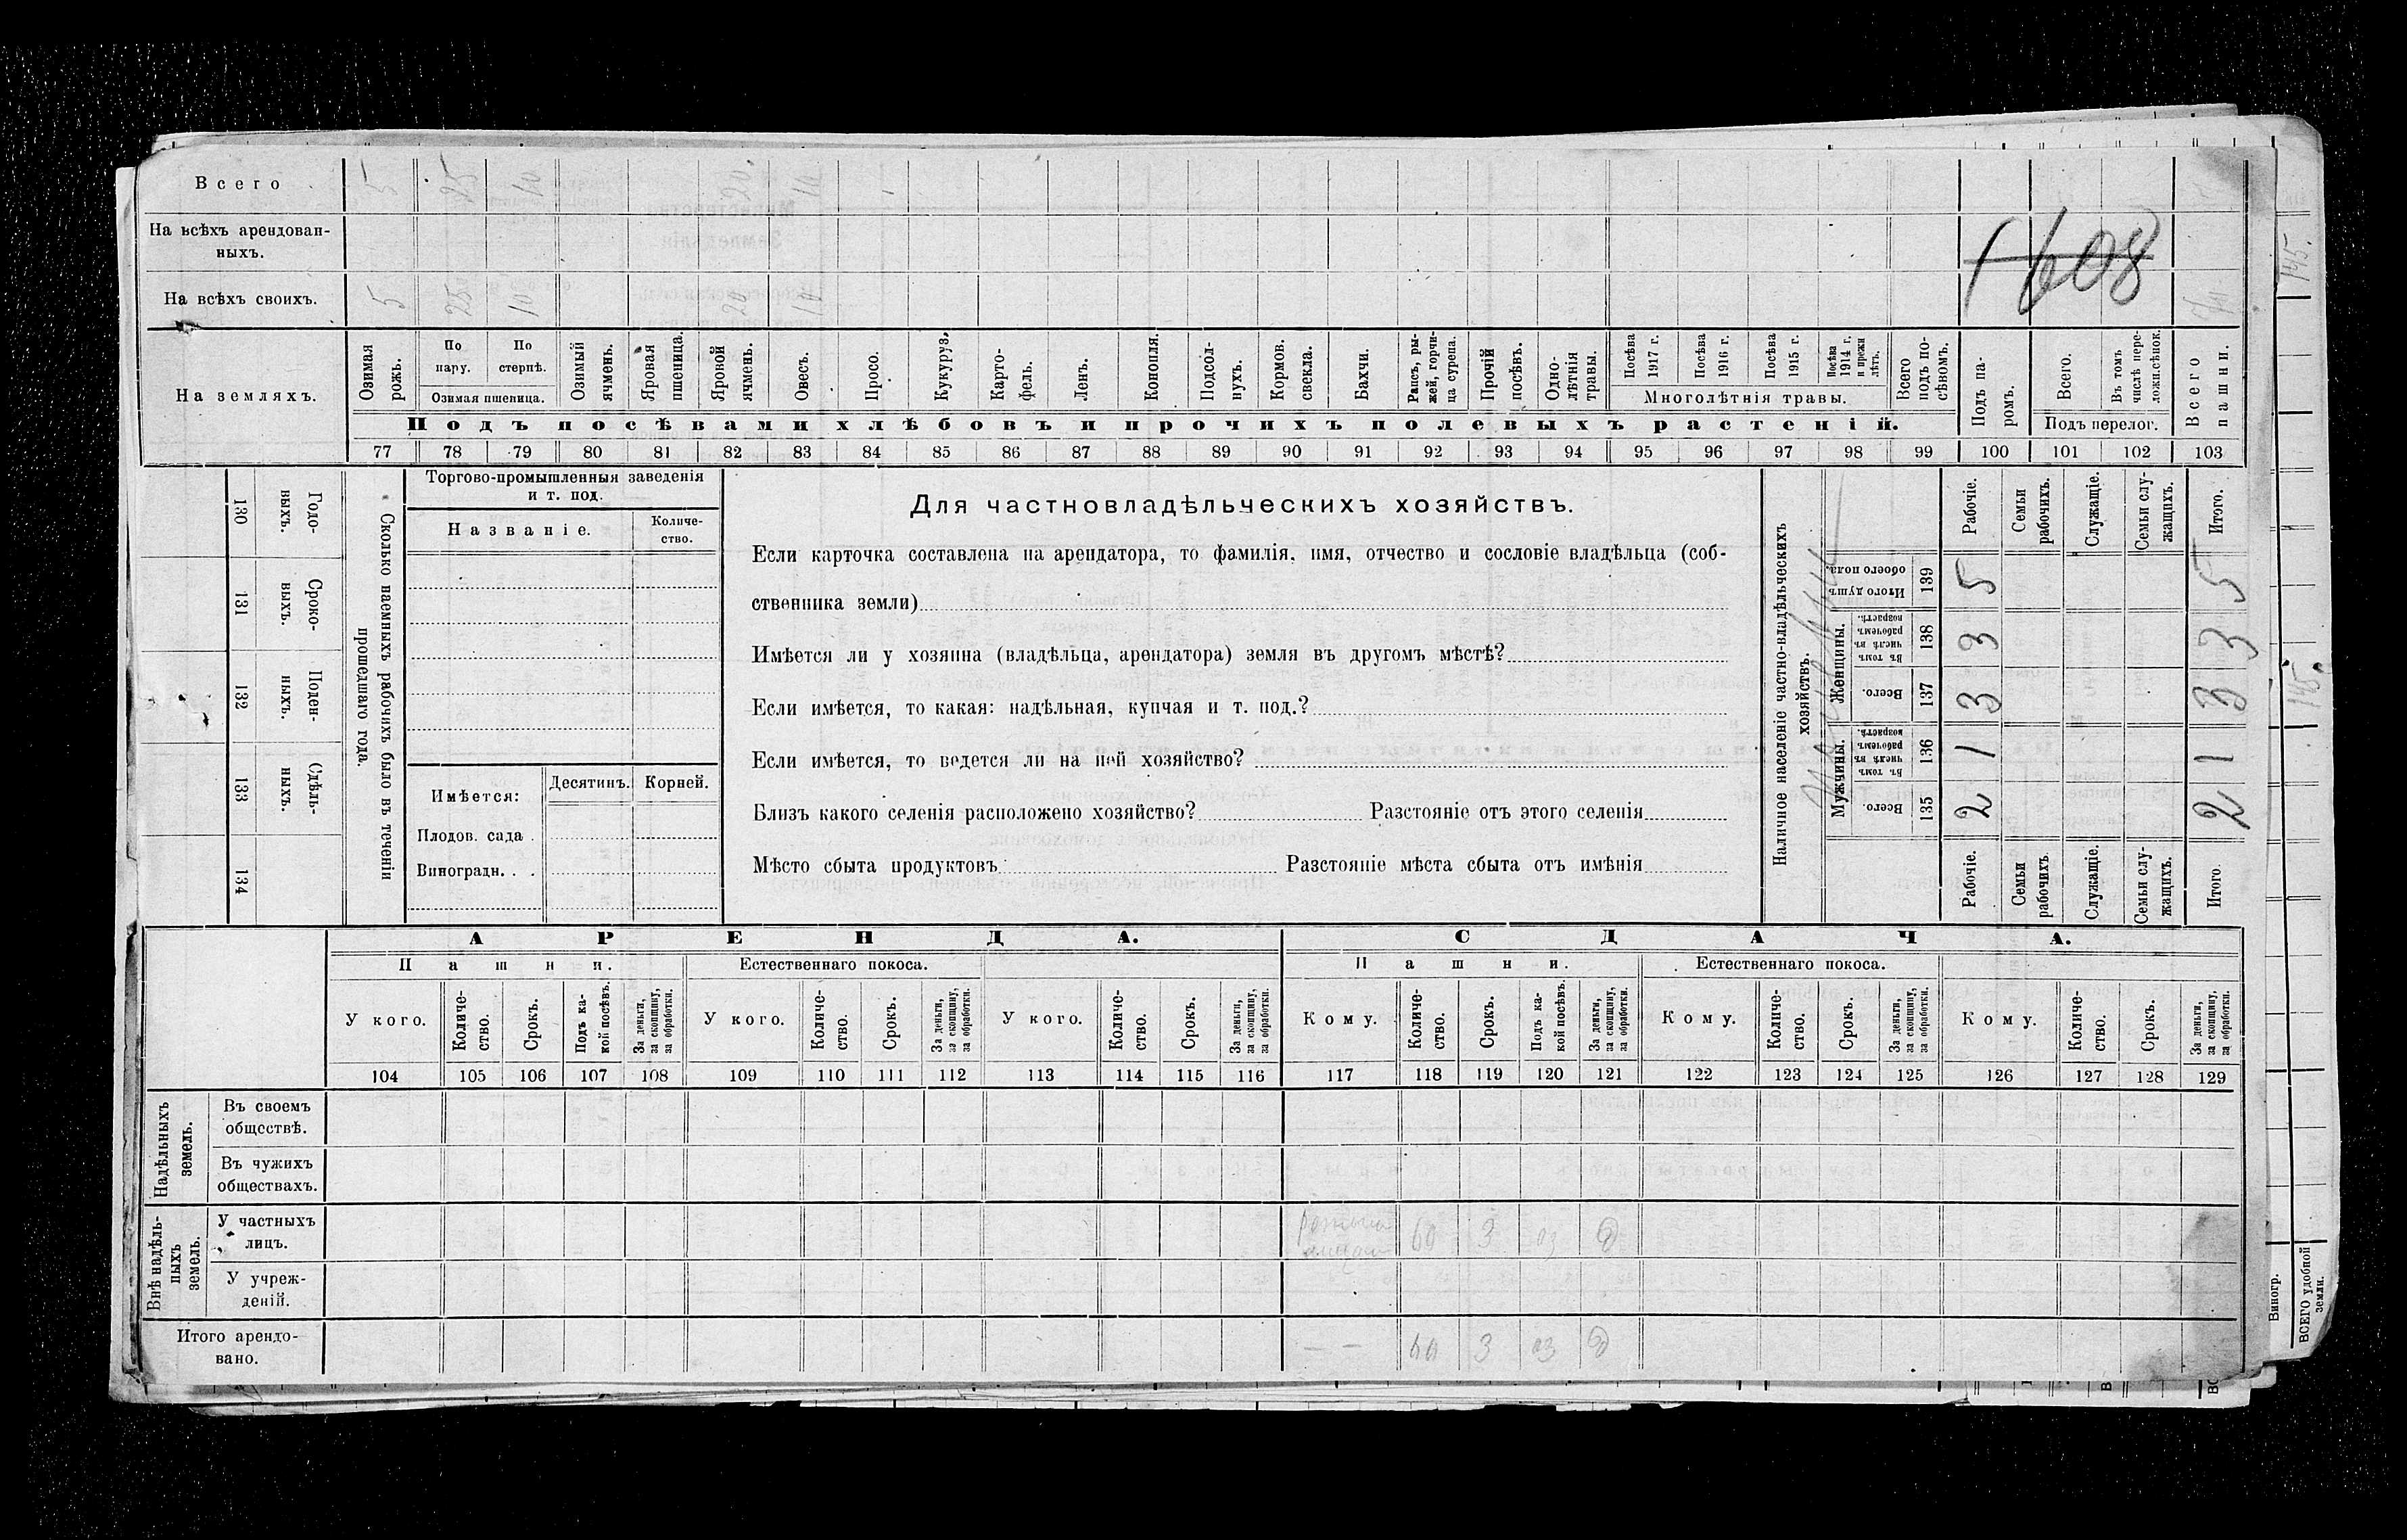 Всего 5 25 10 20 10
На всѣхъ арендован-
ныхъ.
1608
На всѣхъ своихъ. 5 25 10 20 10
На земляхъ.
Озимая рожь.
По пару.
По стернѣ.
Озимая пшеница.
Озимый ячмень.
Яровая пшеница.
Яровой ячмень.
Овесъ.
Просо.
Кукуруз.
Карто-
фель.
Ленъ.
Конопля.
Подсол-
нухъ.
Кормов. свекла.
Бахчи.
Рапсъ, ры-
жей, горчи-
ца сурепа.
Прочій посѣвъ.
Одно-
лѣтнія травы.
Посѣва 1917 г.
Посѣва 1916 г.
Посѣва 1915 г.
Посѣва 1914 г. и прежн лѣтъ.
Многолѣтнія травы.
Всего подъ по-
сѣвомъ.
Подъ па-
ромъ.
Всего.
Въ томъ числѣ пере-
ложн.сѣнок.
Подъ перелог.
Всего пашни.
Подъ посѣвами хлѣбовъ и прочихъ полевыхъ растеній.
77 78 79 80 81 82 83 84 85 86 87 88 89 90 91 92 93 94 95 96 97 98 99 100 101 102 103
130 Годо-
ныхъ.
131 Сроко-
ныхъ.
132 Поден-
ныхъ.
133 Сдѣль-
ныхъ.
134
Сколько наемныхъ рабочихъ было въ теченіи
прошедшаго года.
Торгово-промышленныя заведенія
и т. под.
Названіе.
Количе-
ство.
Имѣется:
Десятинъ. Корней.
Плодов. сада .
Виноградн. . .
Для частновладѣльческихъ хозяйствъ.
Если карточка составлена на арендатора, то фамилія, имя, отчество и сословіе владѣльца (соб-
ственника земли)
Имѣется ли у хозяина (владѣльца, арендатора) земля въ другомъ мѣстѣ?
Если имѣется, то какая: надѣльная, купчая и т. под.?
Если имѣется, то ведется ли на ней хозяйство?
Близъ какого селенія расположено хозяйство? Разстояніе отъ этого селенія
Мѣсто сбыта продуктовъ Разстояніе мѣста сбыта отъ имѣнія
Наличное населеніе частно-владѣльческихъ
хозяйствъ.
Рабочіе.
Семьи рабочихъ.
Служащіе.
Семьи слу-
жащихъ.
Итого.
Итого душъ обоего пола. 139 5 5
Женщины.
Въ томъ числѣ въ рабочемъ возрастѣ. 138 3 3
Всего. 137 3 3
Мужчины.
Въ томъ числѣ въ рабочемъ возрастѣ. 136 1 1
Всего. 135 2 2
Рабочіе.
Семьи рабочихъ
Служащіе.
Семьи слу-
жащихъ.
Итого.
АРЕНДА.
СДАЧА.
Пашни.
Естественнаго покоса.
Пашни.
Естественнаго покоса.
У кого.
Количе-
ство.
Срокъ.
Подъ ка-
кой посѣвъ.
За деньги, за скопщину, за обработки.
У кого.
Количе-
ство.
Срокъ.
За деньги, за скопщину, за обработки.
У кого.
Количе-
ство.
Срокъ.
За деньги, за скопщину, за обработки.
Кому.
Количе-
ство.
Срокъ.
Подъ ка-
кой посѣвъ.
За деньги, за скопщину, за обработки.
Кому.
Количе-
ство.
Срокъ.
За деньги, за скопщину, за обработки.
Кому.
Количе-
ство.
Срокъ.
За деньги, за скопщину, за обработки.
104 105 106 107 108 109 110 111 112 113 114 115 116 117 118 119 120 121 122 123 124 125 126 127 128 129
Надѣльныхъ земель.
Въ своемъ
обществѣ.
Въ чужихъ
обществахъ.
Внѣ надѣль-
ныхъ земель.
У частныхъ
лицъ.
60 3 оз д
У учреж-
деній.
Итого арендо-
вано.
— — 60 3 оз д
145.
145.
Виногр.
ВСЕГО удобной земли.